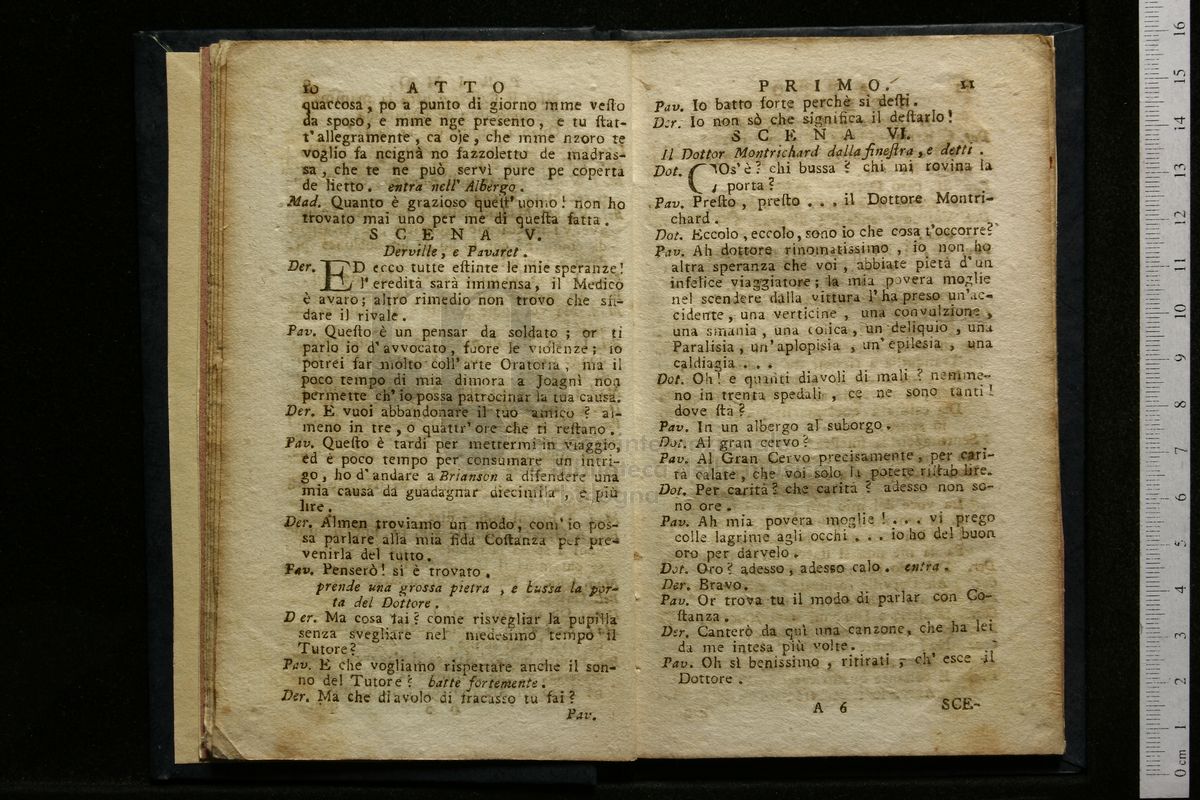 10 ATTO
quaccosa, po a punto di giorno mme veſto
da sposo, e mme nge presento, e tu ſtat-
t'allegramente, ca oje, che mme nzoro te
voglio fa ncignà no fazzoletto de madras-
sa, che te ne può servì pure pe coperta
de lietto. entra nell' Albergo.
Mad. Quanto è grazioso queſt'uomo! non ho
trovato mai uno per me di queſta fatta.
SCENA V.
Derville, e Pavaret.
Der. ED ecco tutte eſtinte le mie speranze!
l'eredità sarà immensa, il Medico
è avaro; altro rimedio non trovo che sfi-
dare il rivale.
Pav. Queſto è un pensar da soldato; or ti
parlo io d'avvocato, fuore le violenze; io
potrei far molto coll'arte Oratoria; ma il
poco tempo di mia dimora a Joagnì non
permette ch'io possa patrocinar la tua causa.
Der. E vuoi abbandonare il tuo amico? al-
meno in tre, o quattr'ore che ti reſtano.
Pav. Queſto è tardi per mettermi in viaggio,
ed è poco tempo per consumare un intri-
go, ho d'andare a Brianson a difendere una
mia causa da guadagnar diecimila, e più
lire.
Der. Almen troviamo un modo, com'io pos-
sa parlare alla mia fida Coſtanza per pre-
venirla del tutto.
Pav. Penserò! si è trovato.
prende una grossa pietra, e bussa la por-
ta del Dottore.
Der. Ma cosa fai? come risvegliar la pupilla
senza svegliare nel medesimo tempo il
Tutore?
Pav. E che vogliamo rispettare anche il son-
no del Tutore? batte fortemente.
Der. Ma che diavolo di fracasso tu fai?
Pav.
PRIMO. 11
Pav. Io batto forte perchè si deſti.
Der. Io non sò che significa il deſtarlo!
SCENA VI.
Il Dottor Montrichard dalla fineſtra, e detti.
Dot. COs'è? chi bussa? chi mi rovina la
porta?
Pav. Preſto, preſto... il Dottore Montri-
chard.
Dot. Eccolo, eccolo, sono io che cosa t'occorre?
Pav. Ah dottore rinomatissimo, io non ho
altra speranza che voi, abbiate pietà d'un
infelice viaggiatore; la mia povera moglie
nel scendere dalla vittura l'ha preso un'ac-
cidente, una verticine, una convulzione,
una smania, una colica, un deliquio, una
Paralisia, un'aplopisia, un'epilesia, una
caldiagia...
Dot. Oh! e quanti diavoli di mali? nemme-
no in trenta spedali, ce ne sono tanti!
dove ſtà?
Pav. In un albergo al suborgo.
Dot. Al gran cervo?
Pav. Al Gran Cervo precisamente, per cari-
tà calate, che voi solo la potete riſtabilire.
Dot. Per carità? che carità? adesso non so-
no ore.
Pav. Ah mia povera moglie!... vi prego
colle lagrime agli occhi... io ho del buon
oro per darvelo.
Dot. Oro? adesso, adesso calo. entra.
Der. Bravo.
Pav. Or trova tu il modo di parlar con Co-
ſtanza.
Der. Canterò da quì una canzone, che ha lei
da me intesa più volte.
Pav. Oh sì benissimo, ritirati, ch'esce il
Dottore.
A 6 SCE-
16
15
14
13
12
11
10
9
8
7
6
5
4
3
2
1
0 cm